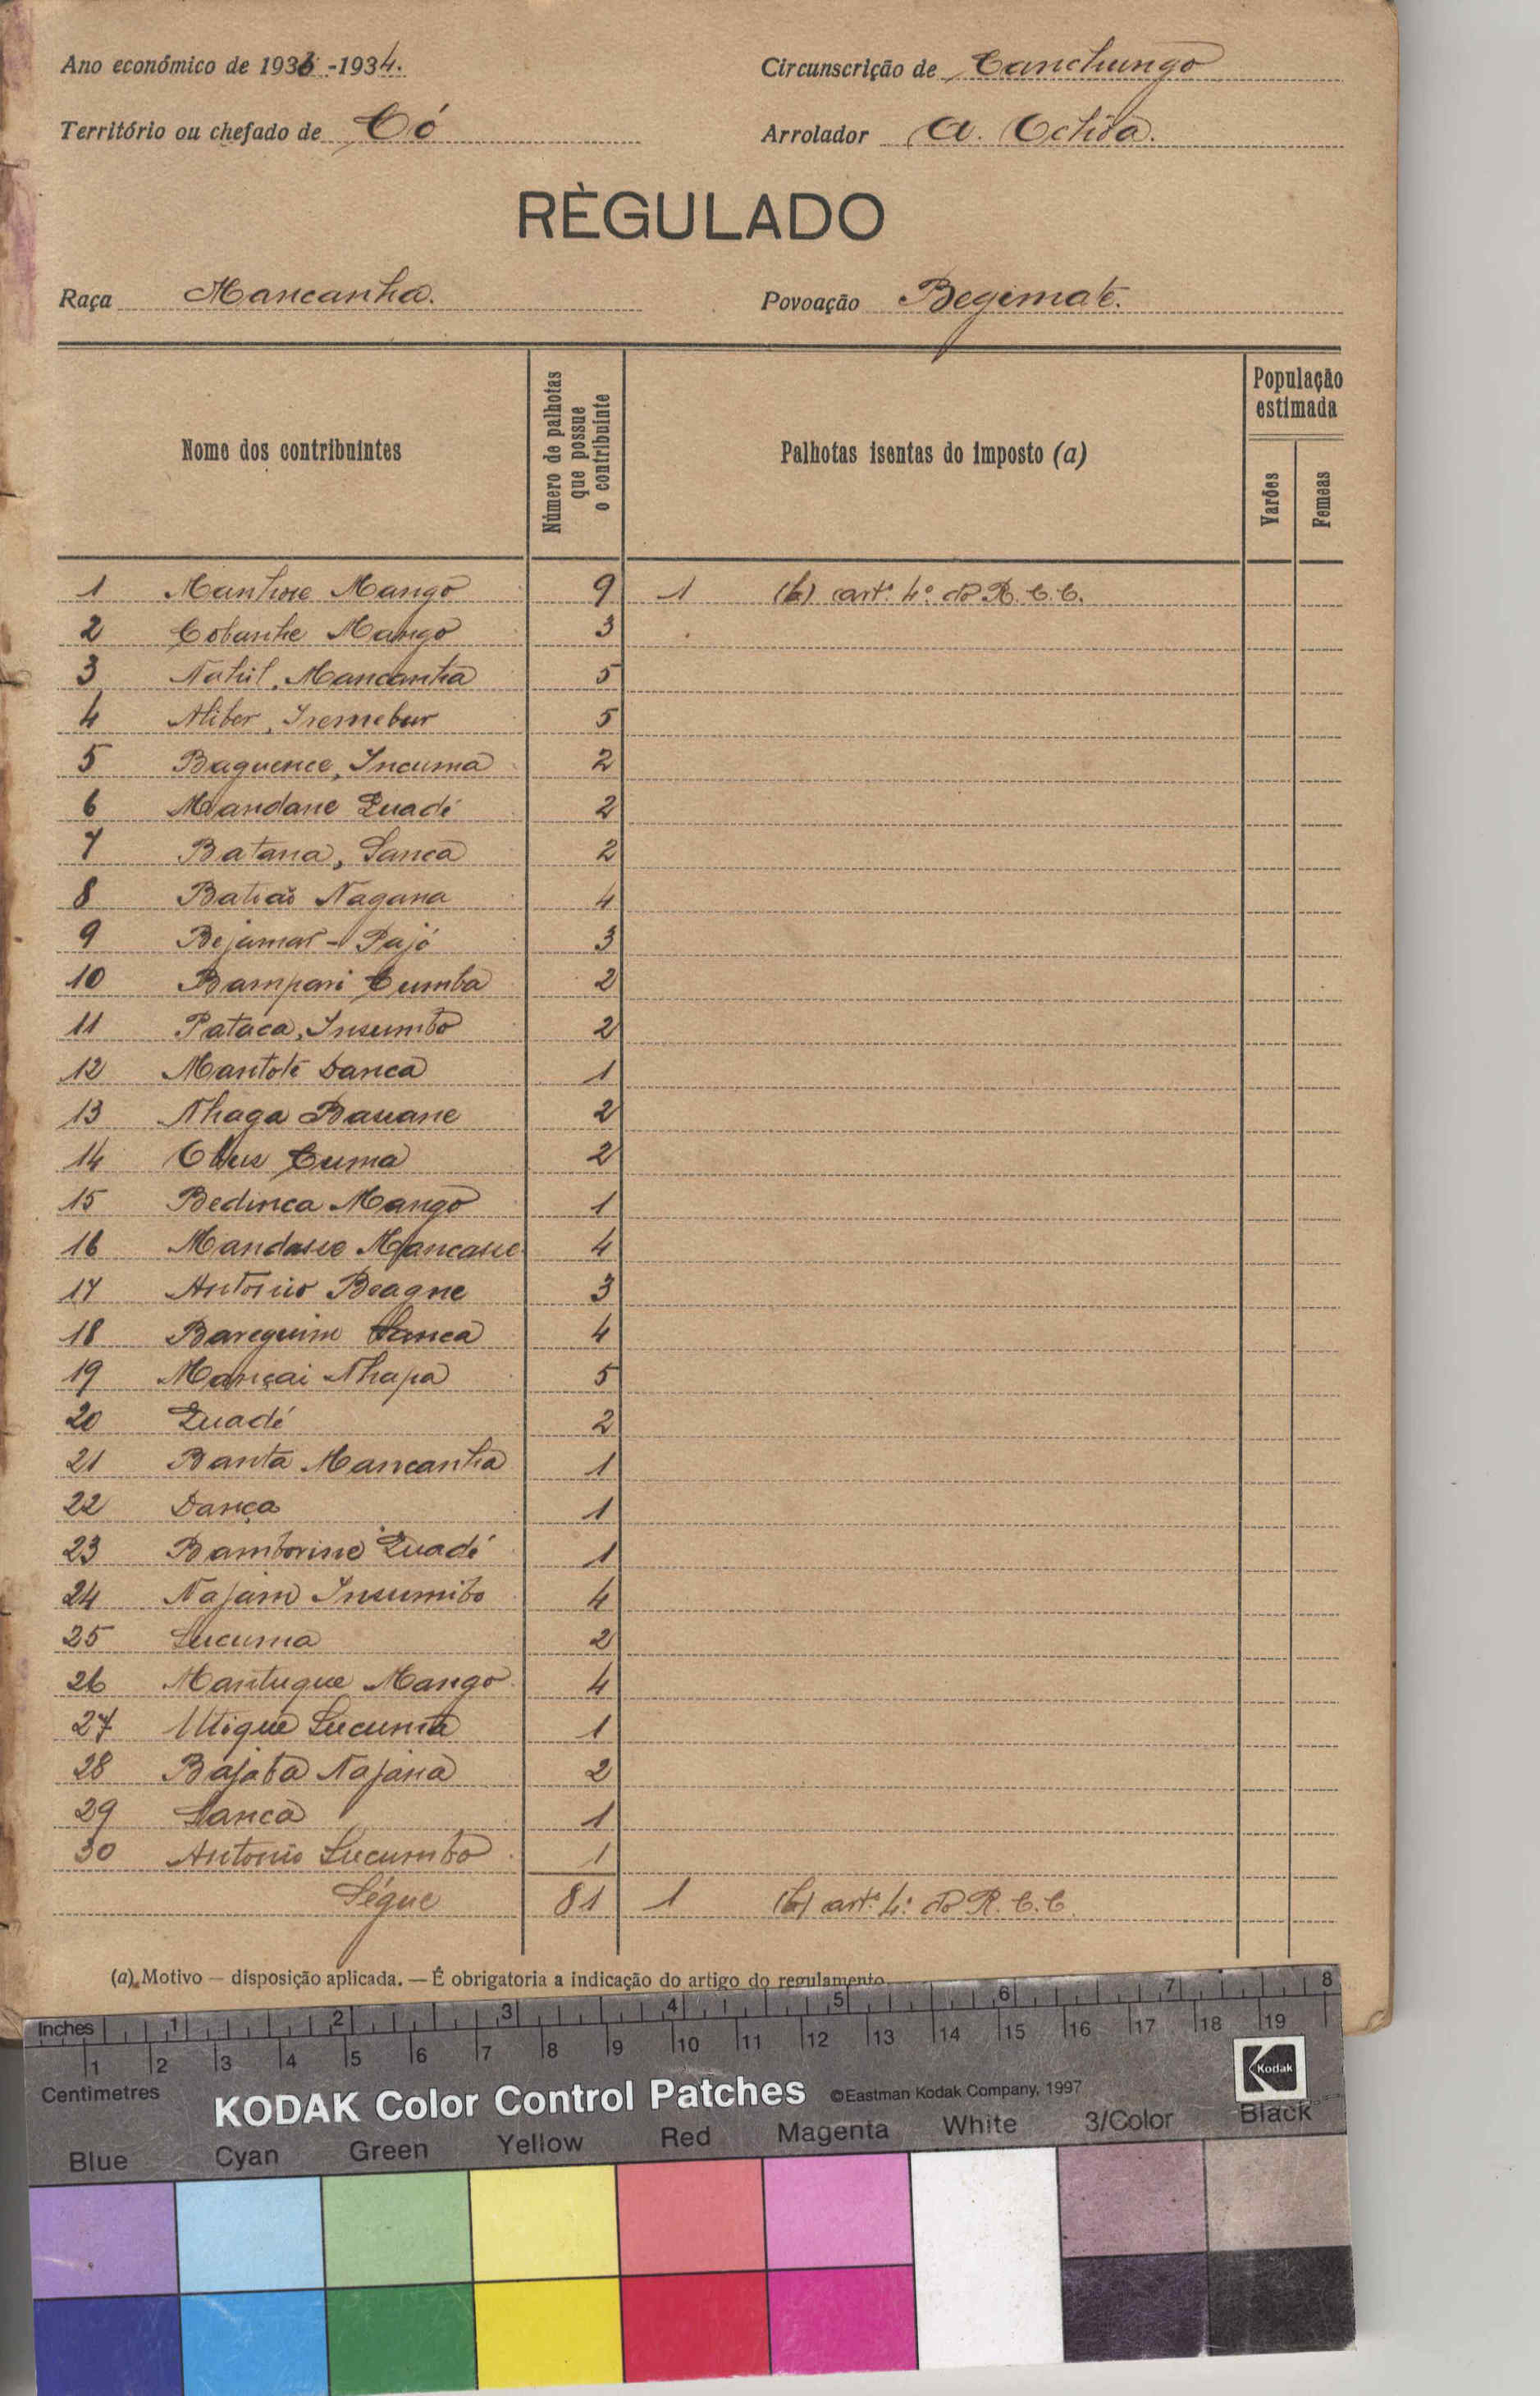 Ano económico de 1933-1934. Circunscrição de Canchungo
Território ou chefado de Có Arrolador A. Ochôa.
RÈGULADO
Raça Mancanha. Povoação Begimate.
Nome dos contribuintes
Número de palhotas que possue o contribuinte
Palhotas isentas do imposto (a)
População estimada
Varões
Femeas
1 Mango 9 1 (b) artº 4º do R. C. C.
2 Cobanhe Mango 3
3 Mancanha 5
4 5
5 Baquence, Incuma 2
6 Mandane Quadé 2
7 Batana, Sanca 2
8 Batiaõ Nagana 4
9 Bejamar - Pajó 3
10 Bampari Cumba 2
11 Pataca, Insumbo 2
12 Mantoté Danca 1
13 Nhaga Bauane 2
14 Cuma 2
15 Bedinca Mango 1
16 4
17 Antonio Beagne 3
18 Barequim Sanca 4
19 Mançai Nhapa 5
20 Quadé 2
21 Banta Mancanha 1
22 Dança 1
23 Bamborine Quadé 1
24 Najam Insumbo 4
25 Lucuma 2
26 Mantuque Mango 4
27 Utique Lucuma 1
28 Bajaba Najana 2
29 Sanca 1
30 Antonio Lucumbo 1
Ségue 81 1 (b) artº 4º do R. C. C.
(a) Motivo — disposição aplicada. — É obrigatoria a indicação do artigo do regulamento
Inches 1 2 3 4 5 6 7 8
1 2 3 4 5 6 7 8 9 10 11 12 13 14 15 16 17 18 19
Centimetres
KODAK Color Control Patches ©Eastman Kodak Company, 1997 Kodak
Blue Cyan Green Yellow Red Magenta White 3/Color Black